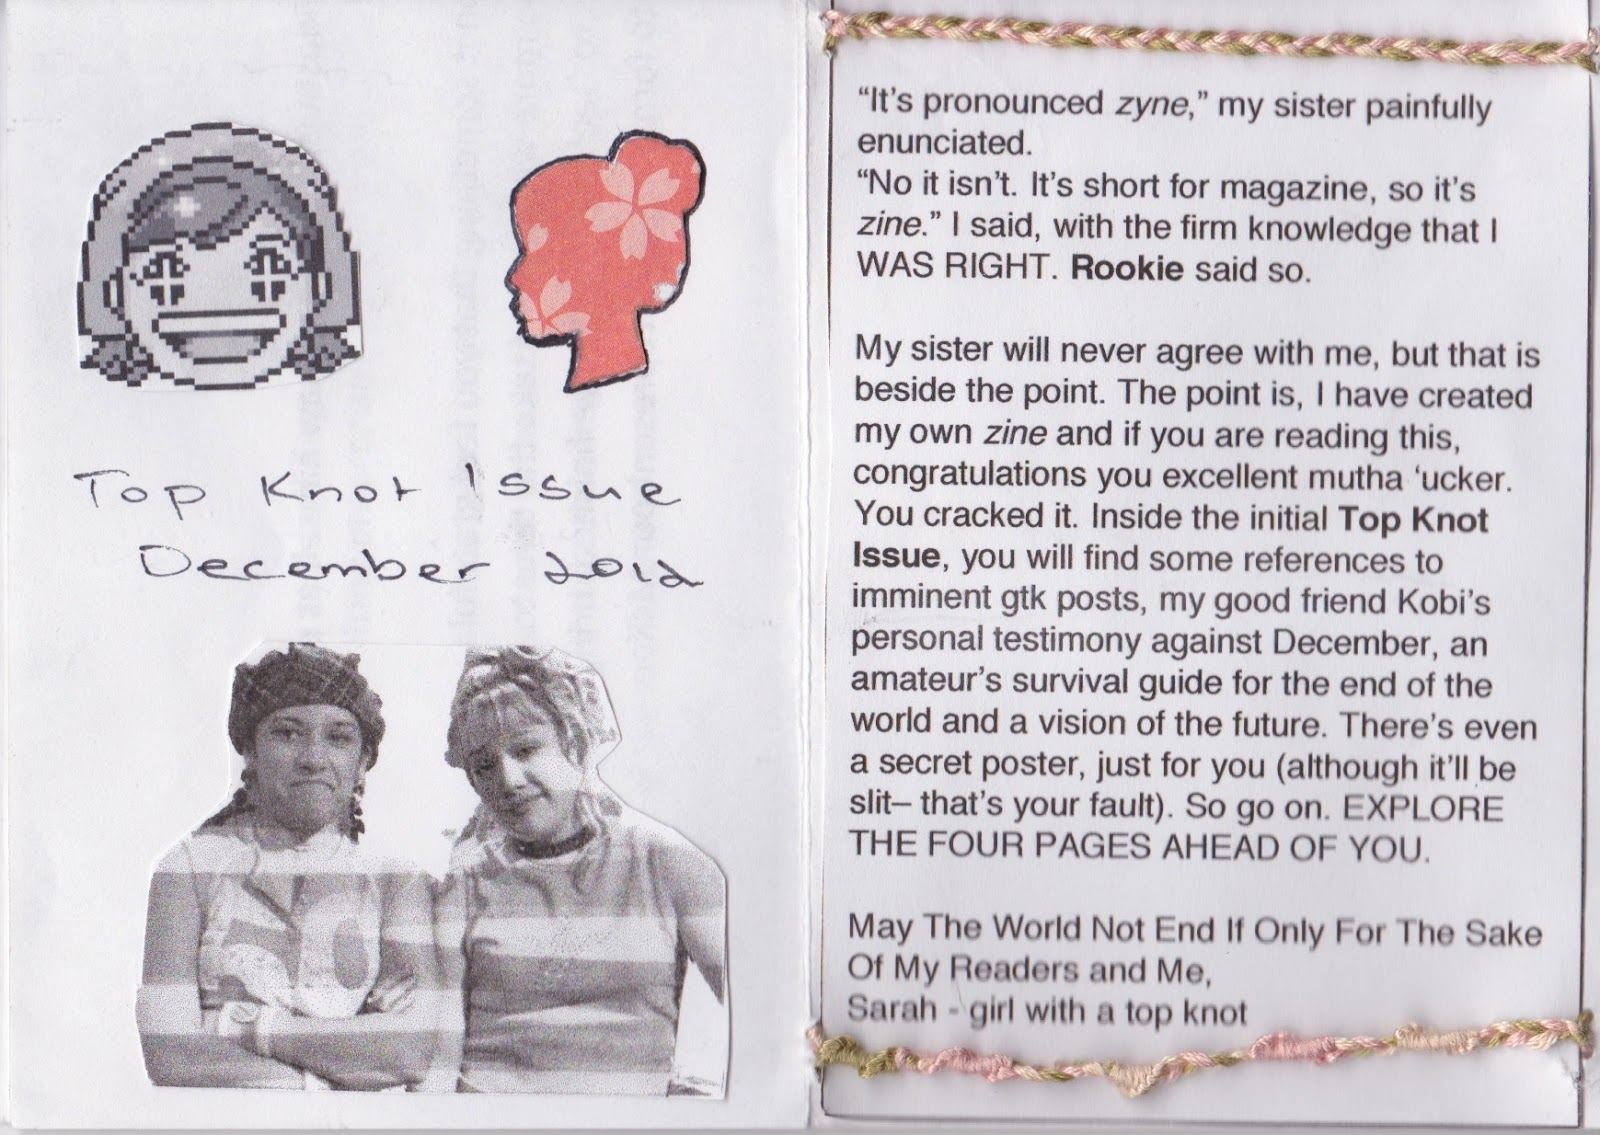 Top Knot Issue
December 2012
“It’s pronounced zyne,” my sister painfully
enunciated.
“No it isn’t. It’s short for magazine, so it’s
zine.” I said, with the firm knowledge that I
WAS RIGHT. Rookie said so.
My sister will never agree with me, but that is
beside the point. The point is, I have created
my own zine and if you are reading this,
congratulations you excellent mutha ‘ucker.
You cracked it. Inside the initial Top Knot
Issue, you will find some references to
imminent gtk posts, my good friend Kobi’s
personal testimony against December, an
amateur’s survival guide for the end of the
world and a vision of the future. There’s even
a secret poster, just for you (although it’ll be
slit– that’s your fault). So go on. EXPLORE
THE FOUR PAGES AHEAD OF YOU.
May The World Not End If Only For The Sake
Of My Readers and Me,
Sarah - girl with a top knot